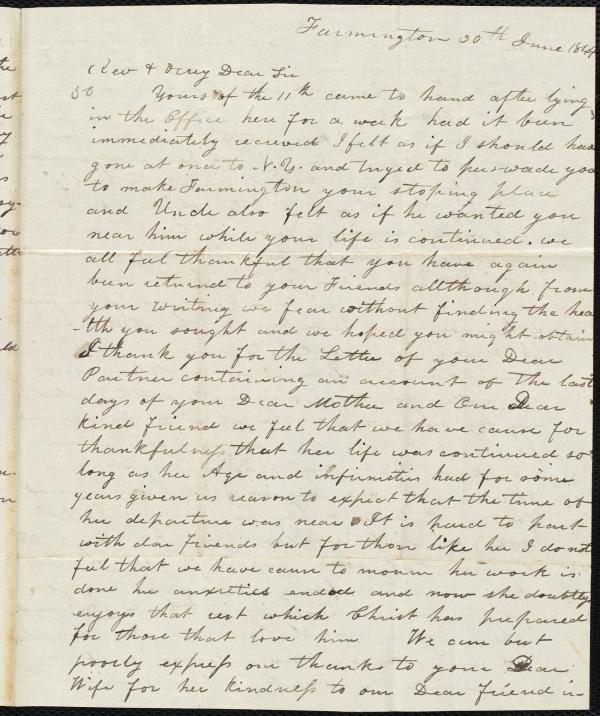 Farmington 20th June 1844
Rev & Very Dear Sir
50 Yours of the 11th came to hand after lying
in the Office here for a week had it been
immediately received I felt as if I should have
gone at once to N.Y. and tryed to perswade you
to make Farmington your stoping place
and Uncle also felt as if he wanted you
near him while your life is continued. we
all feel thankful that you have again
been returned to your Friends allthough from
your writing we fear without finding the hea
-lth you sought and we hoped you might obtain
I thank you for the Letter of your Dear
Partner containing an account of the last
days of your Dear Mother and Our Dear
kind friend we feel that we have cause for
thankfulness that her life was continued so
long as her Age and infirmities had for some
years given us reason to expect that the time of
her departure was near. It is hard to part
with dear Friends but for those like her I do not
feel that we have cause to mourn her work is
done her anxieties ended and now she doubtless
enjoys that rest which Christ has prepared
for those that love him We can but
poorly express our thanks to your Dear
Wife for her kindness to our Dear friend in